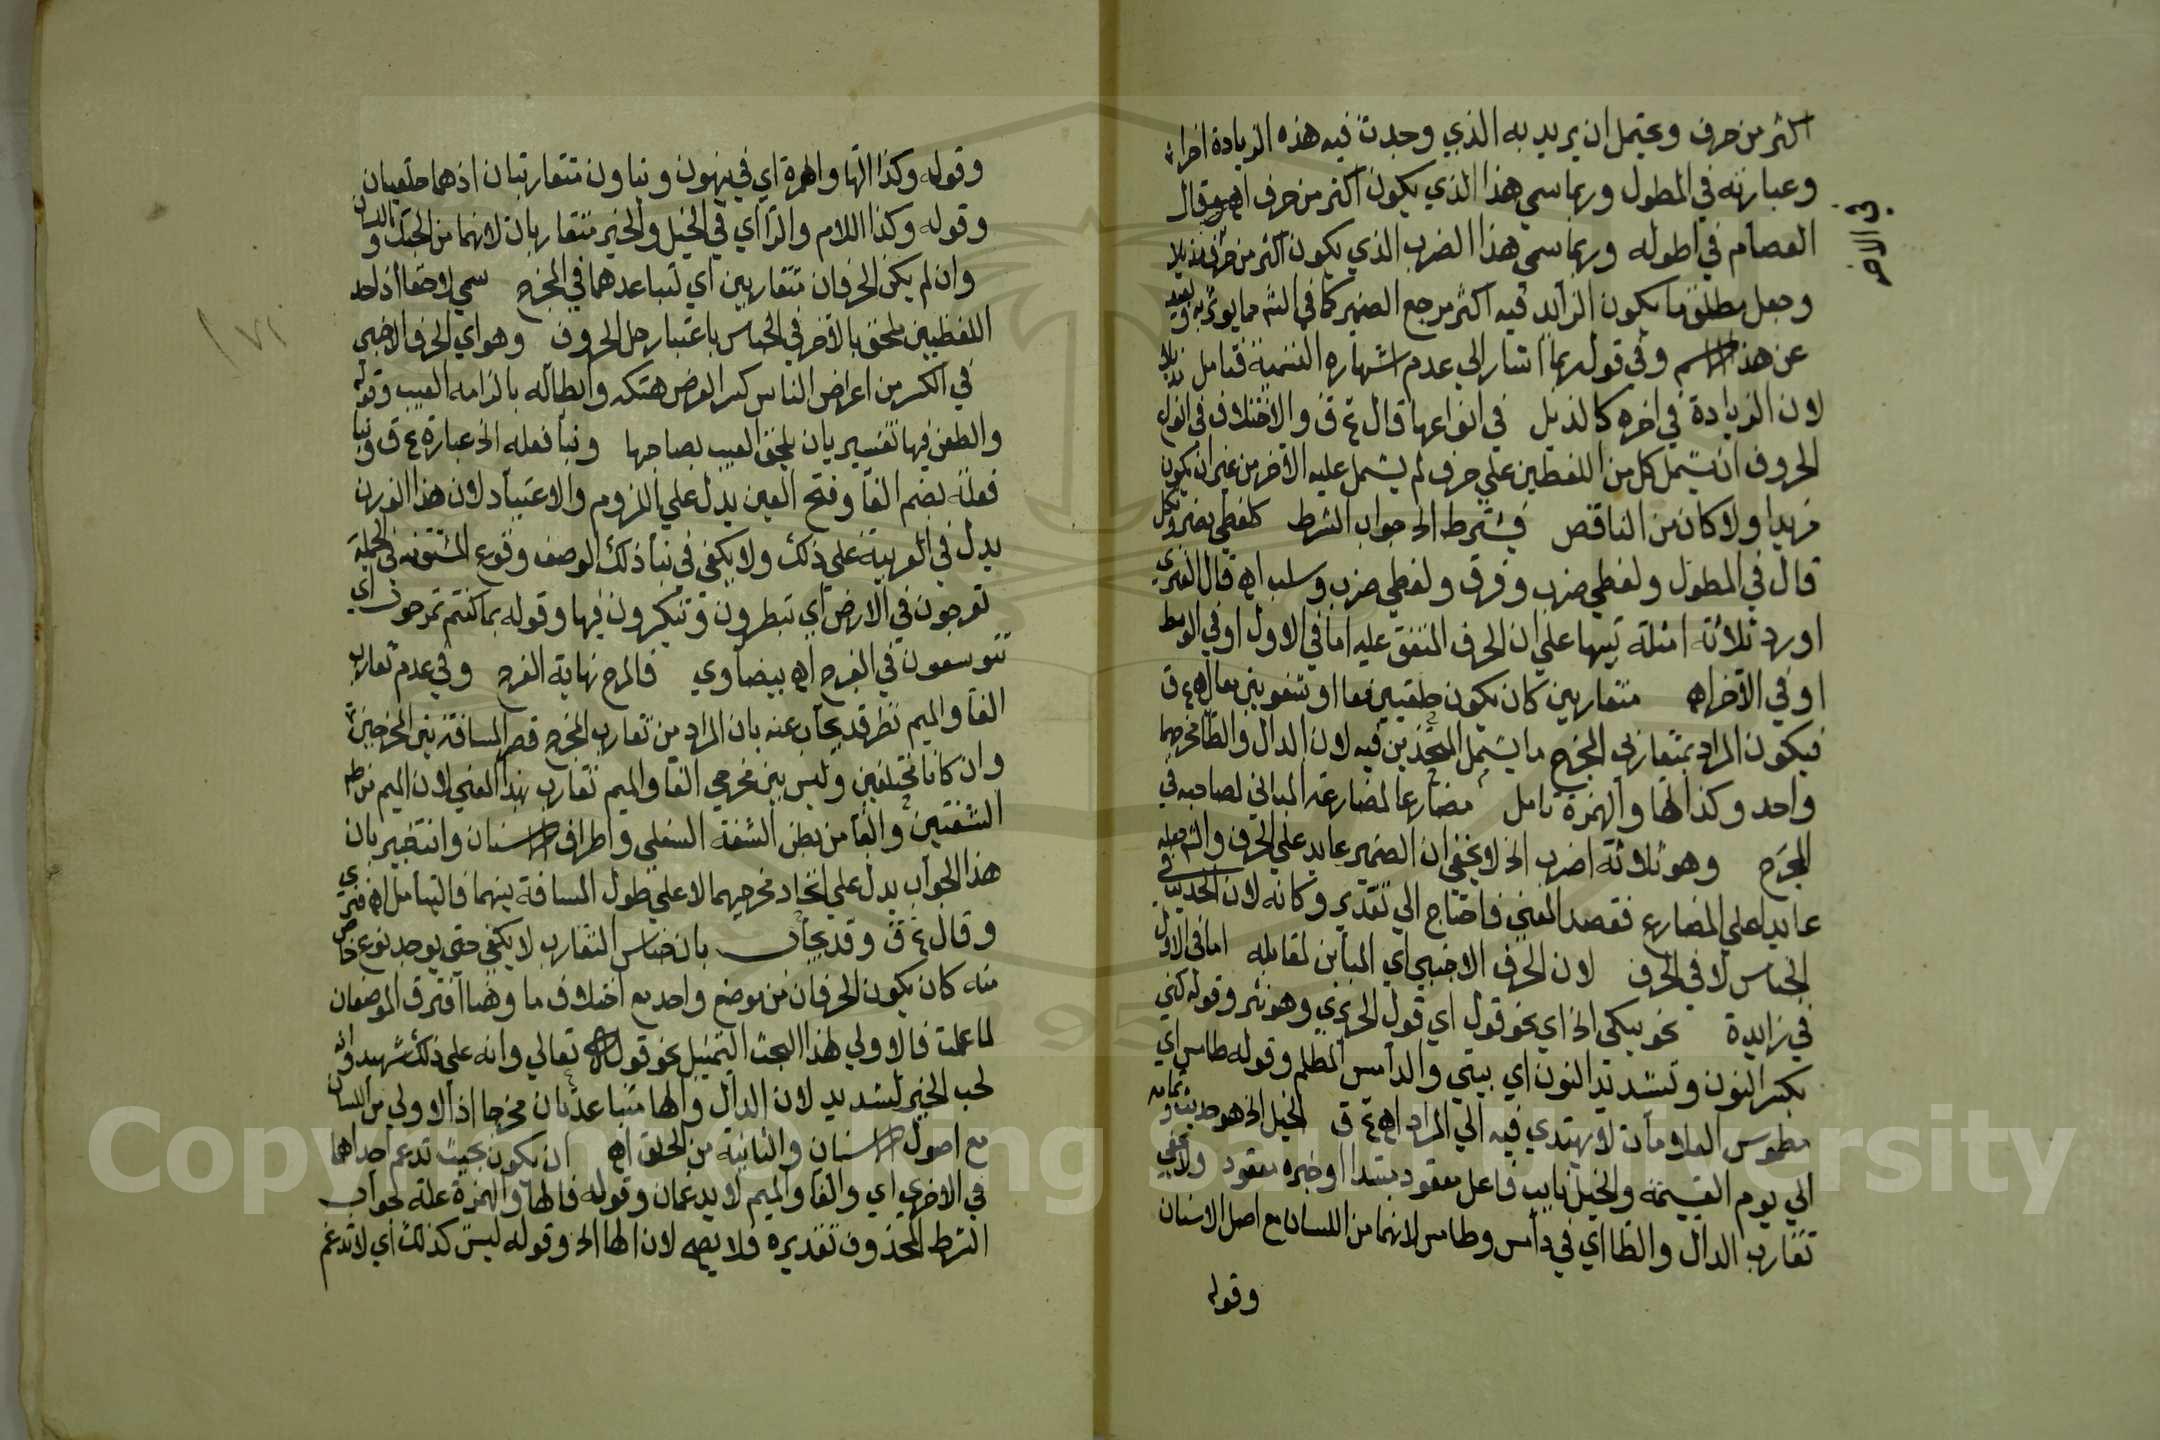 اكثر من حرف ويحتمل ان يريد به الذي وجدت فيه هذه الزيادة اخرا
وعبارته في المطول وربما سمي هذا الذي يكون اكثر من حرف اه وقال
في الاخر
العصام في اطوله وربما سمي هذا الضرب الذي يكون اكثر من حرف مذيلا
وجعل مطلق ما يكون الزايد فيه اكثر مرجع الضمير كما في الشم مما يوثر به وبعيد
عن هذا الاسم وفي قوله ربما اشار الي عدم اشتهاره التسمية فتامل مذيلا
لان الزيادة في اخره كالذيل في انواعها قال ع ق والاختلاف في انواع
الحروف ان يشمل كل من اللفظين علي حرف لم يشمل عليه الاخر من غير ان يكون
مزيدا والا كان من الناقص فيشترط الخ جواب الشرط كلفظي نصر ونكل
قال في المطول ولفظي ضرب وفرق ولفظي ضرب وسلب اه قال الفنري
اورد ثلاثة امثلة تنبيها علي ان الحرف المتفق عليه اما في الاول او في الوسط
او في الاخر اه متقاربين كان يكون حلقيين معا او شفويين معا اه ع ق
فيكون المراد بمتقاربي المخرج ما يشمل المتحدين فيه لان الدال والطا مخرجهما
واحد وكذا الها والهمزة تامل مضارعا لمضارعة المباني لصاحبه في
المخرج وهو ثلاثة اضرب الخ لا يخفي ان الضمير عايد علي الحرف والشم جعله
عايدا علي المضارع فقصد المعني فاحتاج الي تقدير وكانه لان الحديث في
الجناس لا في الحرف لان الحرف الاجنبي اي المباين لمقابله اما في الاول
في زايدة نحو بيني الخ اي نحو قول اي قول الحريري وهو نثر وقوله كني
بكسر النون وتشديد النون اي بيتي والدامس المظلم وقوله طامس اي
مطموس العلامات لا يهتدي فيه الي المراد اه ع ق الخيل الخ هو حديث وتمامه
الي يوم القيمة والخيل نايب فاعل معقود مبتدا او خبره معقود ولا يخفي
تقارب الدال والطا اي في دامس وطامس لانهما من اللسان مع اصل الاسنان
وقوله
وقوله وكذا الها والهمزة اي في ينهون ويناون متقاربتان اذ هما حلقيتان
وقوله وكذا اللام والرا اي في الخيل والخير متقاربان لانهما من الحنك واللسان
وان لم يكن الحرفان متقاربين اي لتباعدهما في المخرج سمي لاحقا اذ احد
اللفظين ملحق بالاخر في الجناس باعتبار جل الحروف وهو اي الحرف الاجنبي
في الكسر من اعراض الناس كسر العرض هتكه وابطاله بالزامه العيب وقوله
والطعن فيها تفسير بان يلحق العيب بصاحبها وبنا فعله الخ عبارة ع ق وبنا
فعلة بضم الفا وفتح العين يدل علي اللزوم والاعتياد لان هذا الوزن
يدل في العربية علي ذلك ولا يكفي في بنا ذلك الوصف وقوع المشتق منه في الجملة
تفرحون في الارض اي تبطرون وتتكبرون فيها وقوله بما كنتم تمرحون اي
تتوسعون في الفرح اه بيضاوي فالمرح نهاية الفرح وفي عدم تقارب
الفا والميم نظر قد يجاب عنه بان المراد من تقارب المخرج قصر المسافة بين المخرجين
وان كانا مختلفين وليس بين مخرجي الفا والميم تقارب بهذا المعني لان الميم من ظهر
الشفتين والفا من بطن الشفة السفلي واطراف الاسنان وانت خبير بان
هذا الجواب يدل علي اتحاد مخرجيهما لا علي طول المسافة بينهما فاليتامل اه فنري
وقال ع ق وقد يجاب بان جناس التقارب لا يكفي حتي يوجد نوع خاص
منه كان يكون الحرفان من موضع واحد مع اختلاف ما وهنا افترق الموضعان
لما علمت فالاولي لهذا البحث التمثيل بنحو قوله تعالي وانه علي ذلك لشهيد وانه
لحب الخير لشديد لان الدال والها متباعدتان مخرجا اذ الاولي من اللسان
مع اصول الاسنان والثانية من الحلق اه ان يكون بحيث تدغم احداهما
في الاخري اي والفا والميم لا يدغمان وقوله فالها والهمزة علة لجواب
الشرط المحذوف تقديره فلا يصح لان الها الخ وقوله ليس كذلك اي لا تدغم
١٧١
Copyright © King Saud University
195